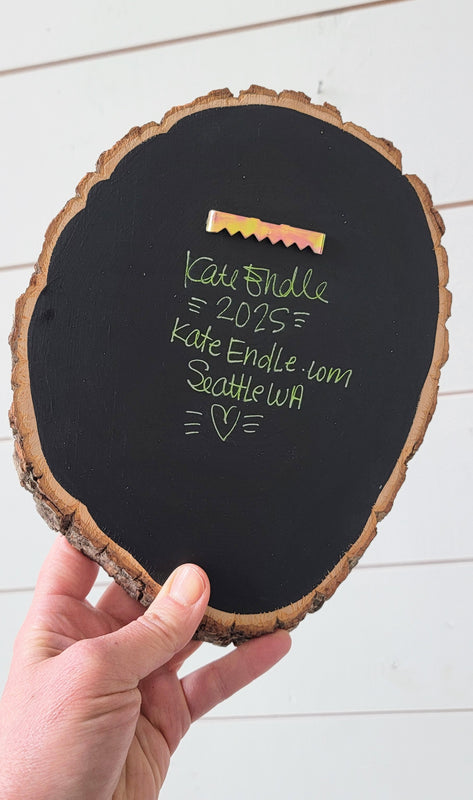 Kate Endle
2025
Kate Endle.com
Seattle WA